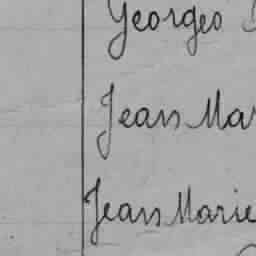 Georges
Jean Mar
Jean Marie